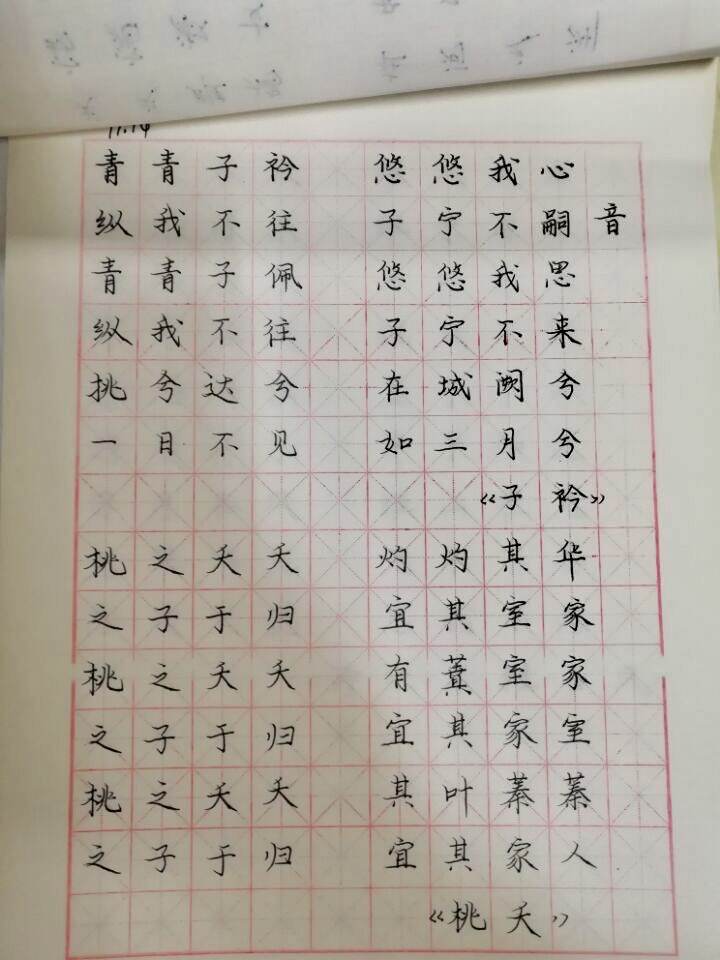 11.14
青青子衿 悠悠我心
纵我不往 子宁不嗣音
青青子佩 悠悠我思
纵我不往 子宁不来
挑兮达兮 在城阙兮
一日不见 如三月兮
《子衿》
桃之夭夭 灼灼其华
之子于归 宜其室家
桃之夭夭 有蕡室家
之子于归 宜其家室
桃之夭夭 其叶蓁蓁
之子于归 宜其家人
《桃夭》